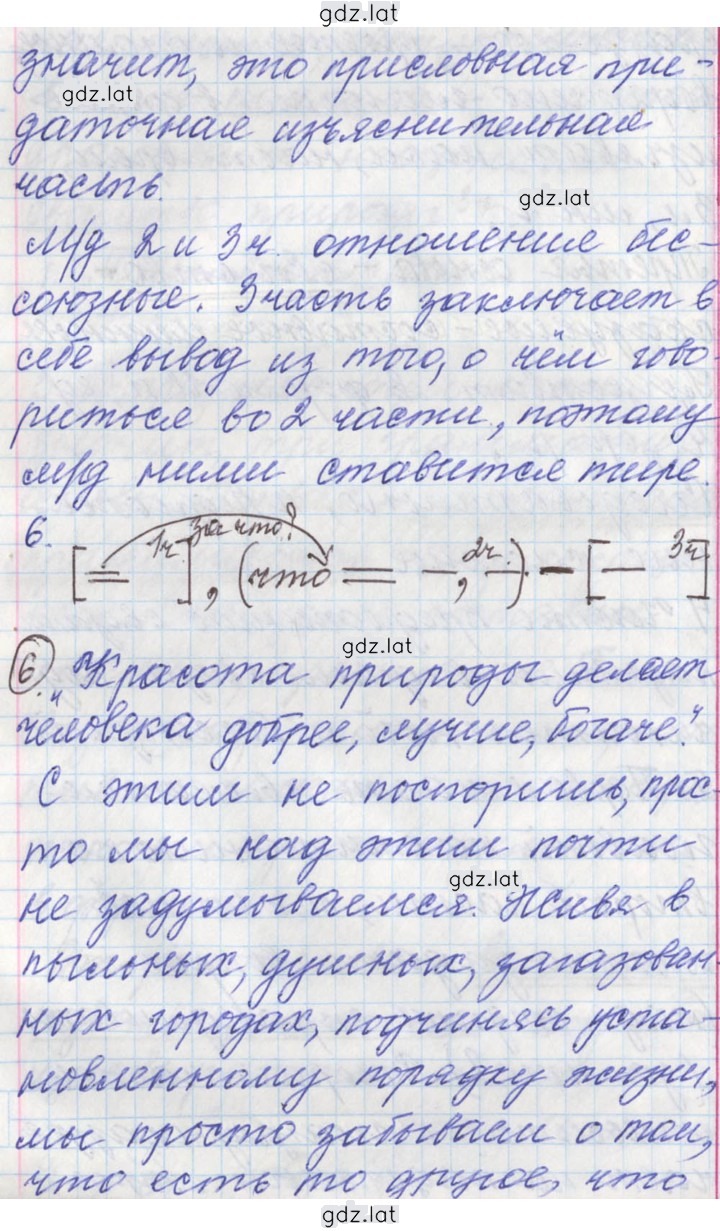 gdz.lat
значит, это присловная при-
gdz.lat
даточная изъяснительная
часть.
gdz.lat
М/д 2 и 3ч. отношения бес-
союзные. 3 часть заключает в
себе вывод из того, о чём гово
риться во 2 части, поэтому
м/д ними ставится тире.
6. за что?
[= 1ч.], (что = —, — 2ч.) – [— 3ч.]
gdz.lat
6. „Красота природы делает
человека добрее, лучше, богаче".
С этим не поспоришь, прос-
то мы над этим почти
gdz.lat
не задумываемся. Живя в
пыльных, душных, загазован-
ных городах, подчиняясь уста-
новленному порядку жизни,
мы просто забываем о том,
что есть то другое, что
gdz.lat